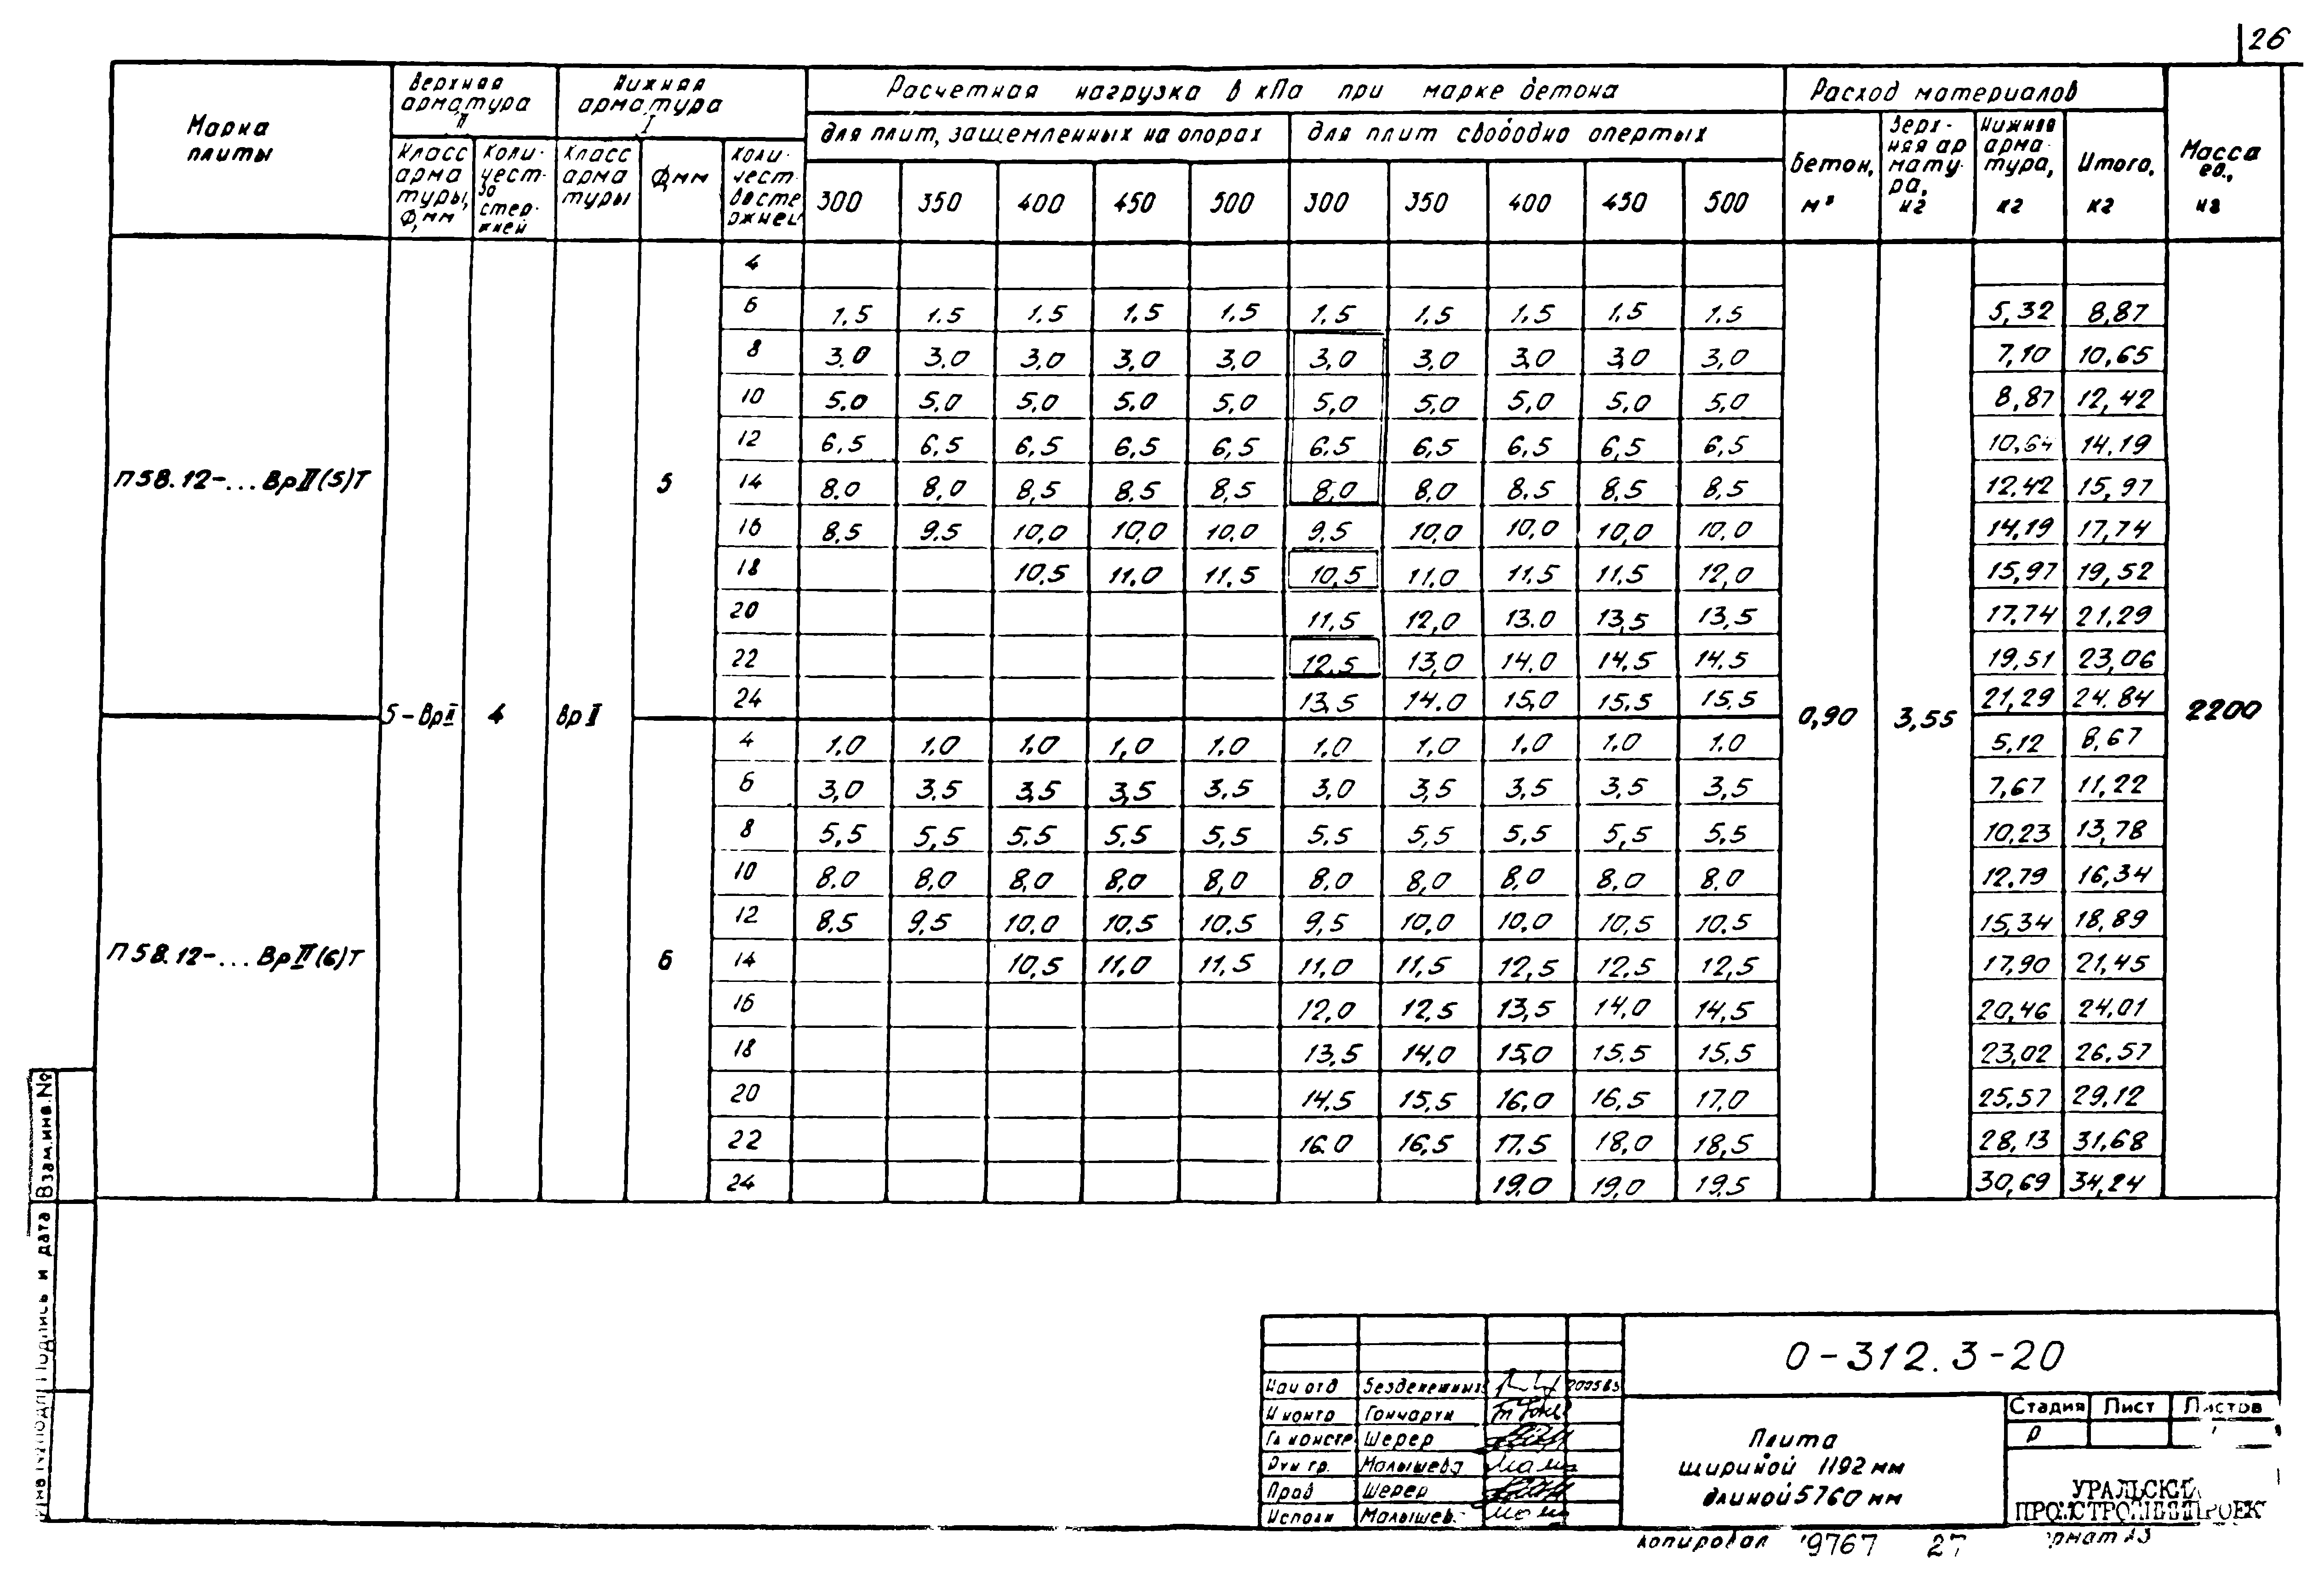 26
Марка плиты
Верхняя арматура II
Нижняя арматура I
Расчетная нагрузка в кПа при марке бетона
Расход материалов
Масса ед., кг
для плит, защемленных на опорах
для плит свободно опертых
Класс арматуры, Ф, мм
Количество стержней
Класс арматуры
Ф, мм
Количество стержней
300 350 400 450 500 300 350 400 450 500
Бетон, м³
Верхняя арматура, кг
Нижняя арматура, кг
Итого, кг
П58.12-... ВрII(5)Т
5
4
6 1,5 1.5 1.5 1,5 1,5 1,5 1,5 1,5 1,5 1.5 5,32 8,87
8 3.0 3,0 3,0 3,0 3,0 3,0 3,0 3,0 3,0 3,0 7,10 10,65
10 5.0 5,0 5,0 5.0 5,0 5,0 5,0 5,0 5,0 5,0 8,87 12,42
12 6,5 6,5 6,5 6,5 6,5 6.5 6,5 6,5 6,5 6,5 10,64 14,19
14 8.0 8,0 8,5 8,5 8,5 8,0 8,0 8.5 8,5 8,5 12,42 15,97
16 8,5 9.5 10,0 10,0 10.0 9,5 10,0 10,0 10,0 10,0 14,19 17,74
18 10,5 11.0 11,5 10,5 11.0 11,5 11,5 12,0 15,97 19,52
20 11,5 12,0 13.0 13,5 13,5 17.74 21,29
22 12,5 13,0 14.0 14,5 14,5 19,51 23,06
24 13,5 14.0 15,0 15,5 15,5 21,29 24.84
5-ВрII 4 ВрII 0,90 3,55 2200
П58.12-... ВрII(6)Т
6
4 1,0 1,0 1,0 1,0 1,0 1,0 1,0 1,0 1,0 1.0 5,12 8,67
6 3,0 3.5 3,5 3,5 3,5 3,0 3,5 3,5 3,5 3,5 7,67 11,22
8 5,5 5,5 5,5 5,5 5,5 5,5 5,5 5,5 5,5 5,5 10,23 13,78
10 8.0 8,0 8,0 8,0 8,0 8,0 8,0 8,0 8,0 8.0 12,79 16,34
12 8,5 9,5 10,0 10,5 10,5 9,5 10,0 10,0 10,5 10,5 15,34 18,89
14 10,5 11.0 11,5 11,0 11,5 12,5 12,5 12,5 17,90 21,45
16 12,0 12,5 13,5 14,0 14,5 20,46 24,01
18 13,5 14,0 15,0 15.5 15,5 23,02 26,57
20 14,5 15,5 16,0 16,5 17,0 25,57 29,12
22 16.0 16,5 17.5 18,0 18,5 28,13 31,68
24 19,0 19,0 19,5 30,69 34,24
Взам.инв.№
Подпись и дата
О-312.3-20
Нач отд Безденежных
Н контр Гончарук
Гл констр Шерер
Рук гр. Малышева
Пров Шерер
Исполн Малышев
Плита
шириной 1192 мм
длиной 5760 мм
Стадия Лист Листов
Р
УРАЛЬСКИЙ
ПРОМСТРОЙНИИПРОЕКТ
Копировал 19767 27